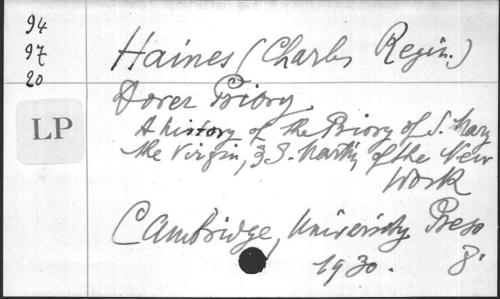 94
97
20
LP
Haines (Charles Regin.)
Dover Priory.
A history of the Priory of S. Mary
the Virgin, & S. Martin of the New
Work
Cambridge, University Press
1930. 8.